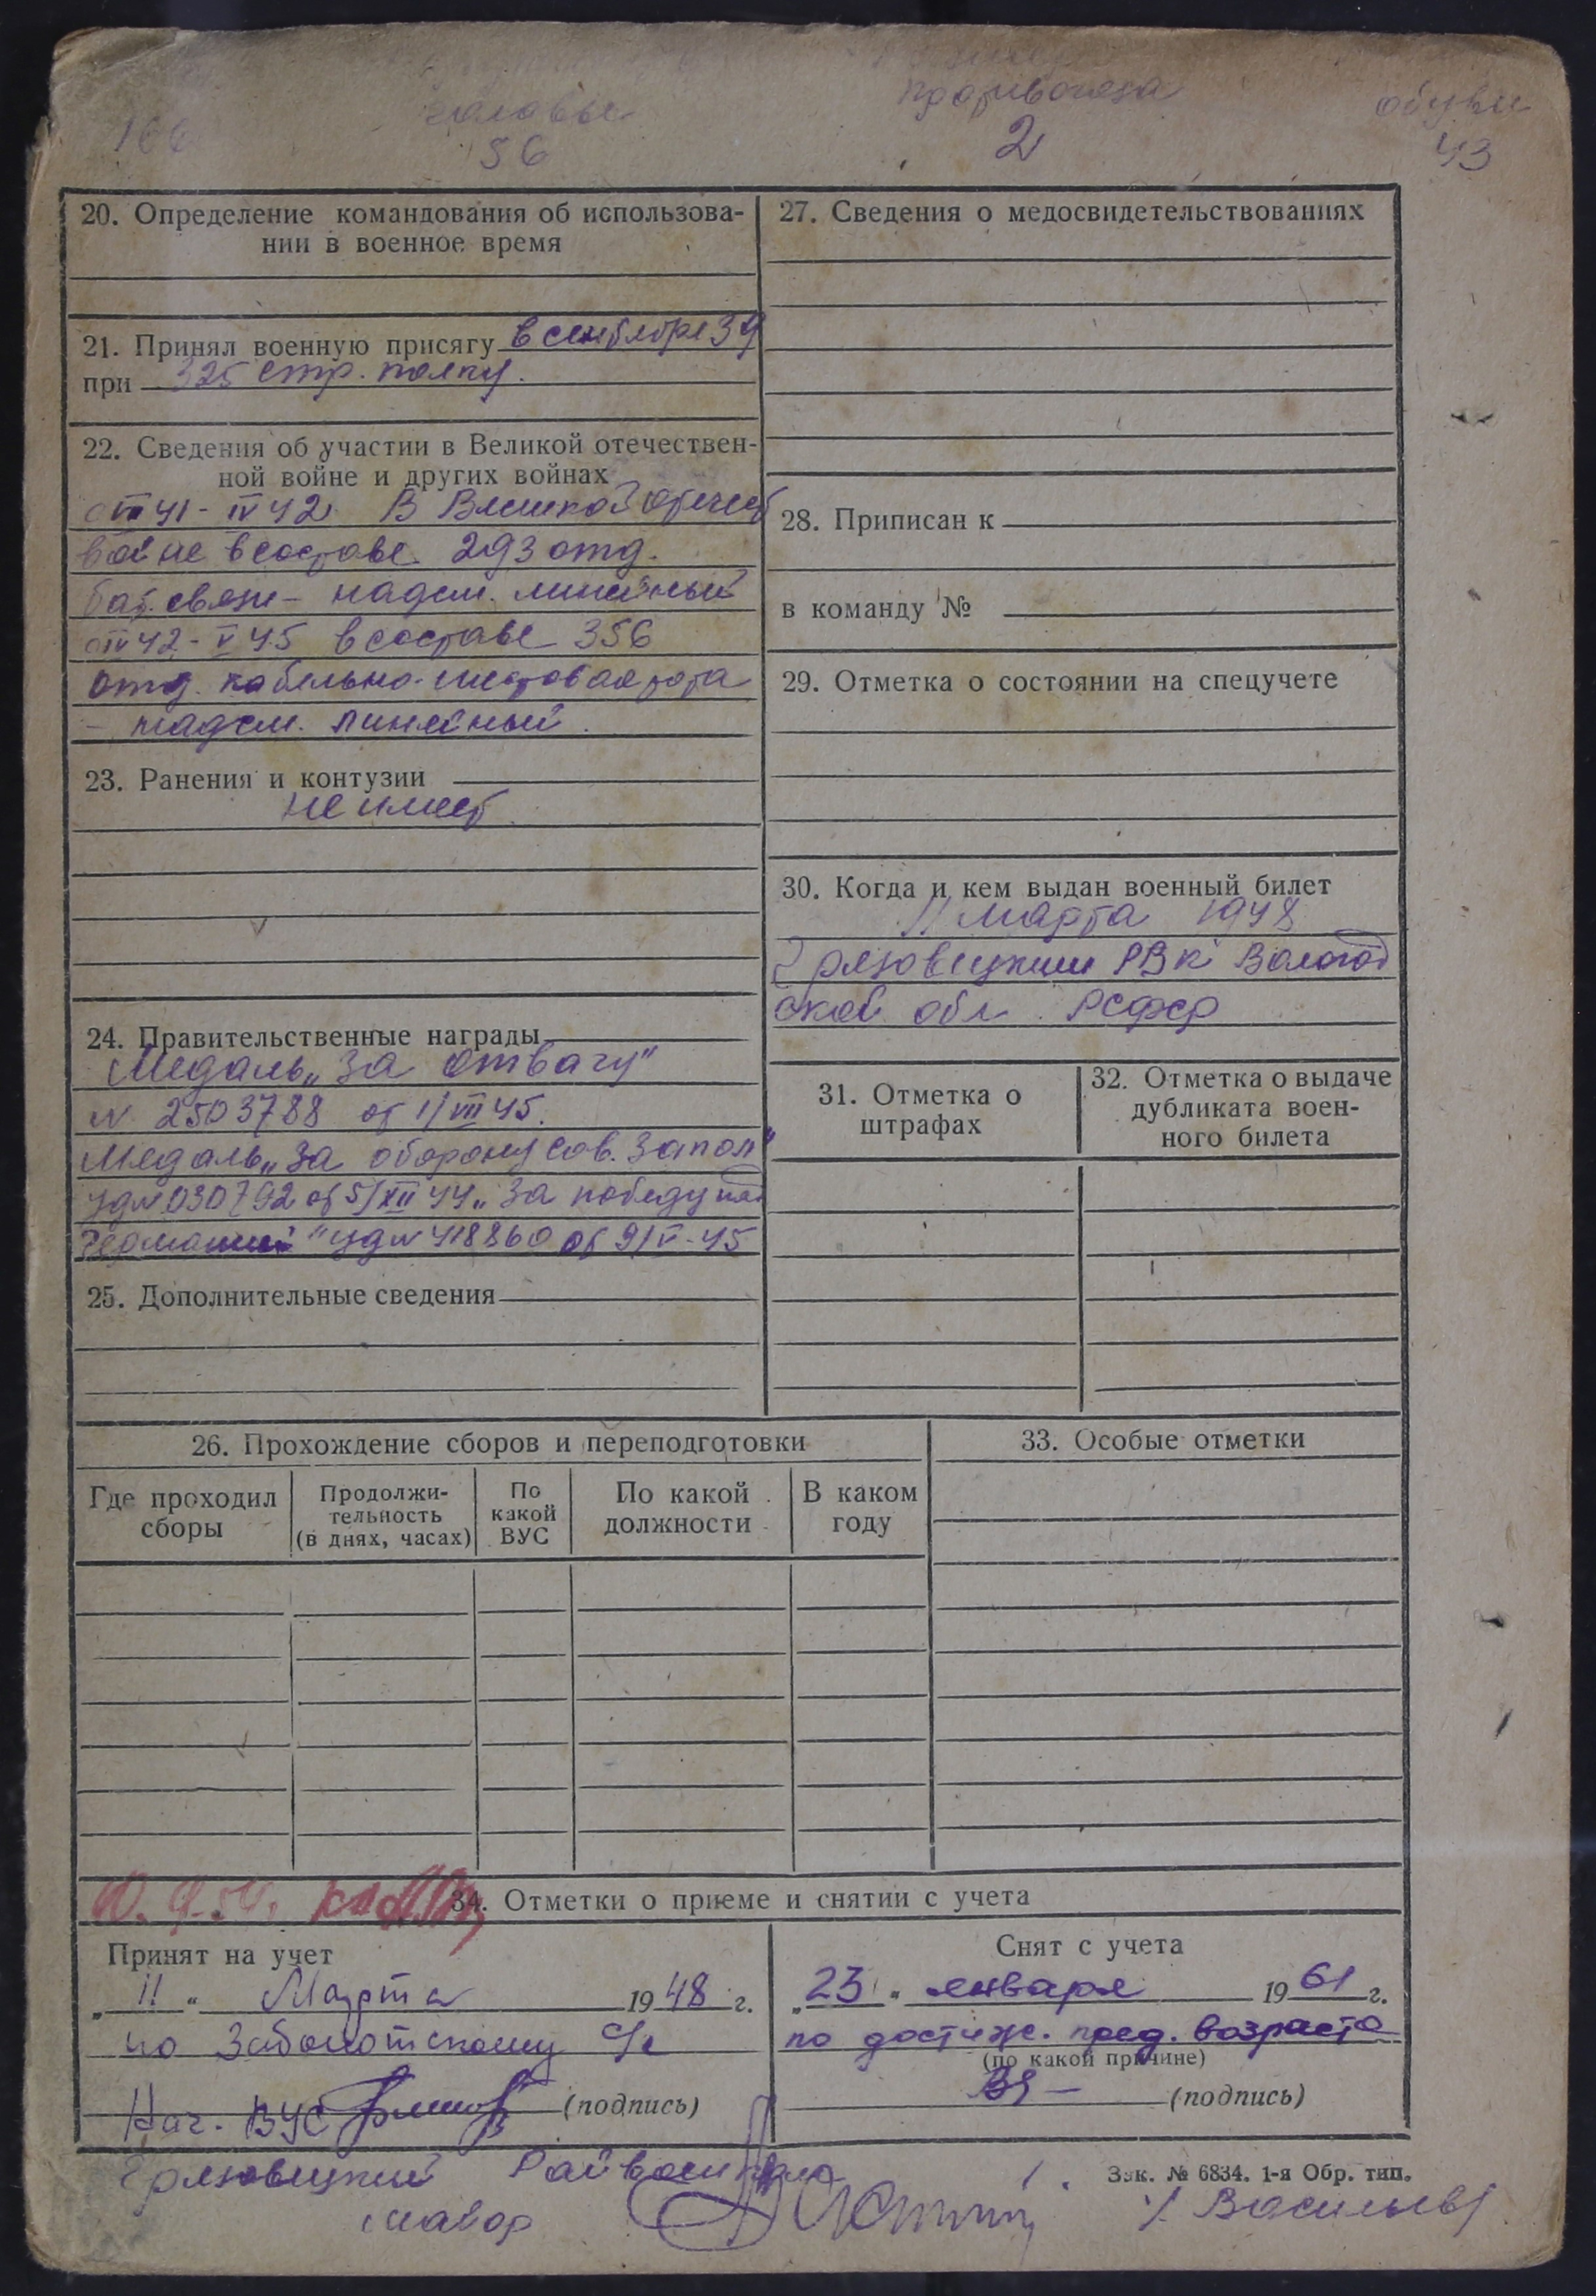 головы
противогаза
обуви
56
2
43
20. Определение командования об использова-
нии в военное время
21. Принял военную присягу в сентябре 39
при 325 стр. полку.
22. Сведения об участии в Великой отечествен-
ной войне и других войнах
с VII 41 - IV 42 В Великой Отечест
войне в составе 293 отд.
бат. связи - надсм. линейный
с IV 42 - V 45 в составе 356
отд. кабельно-шестовая рота
- надсм. линейный.
23. Ранения и контузии
не имеет
24. Правительственные награды
Медаль „За отвагу"
N 2503788 от 1/VIII 45.
Медаль „За оборону Сов. Запол"
уд N 030792 от 5/XII 44 „За победу над
Германией" уд N 418860 от 9/V-45
25. Дополнительные сведения
27. Сведения о медосвидетельствованиях
28. Приписан к
в команду №
29. Отметка о состоянии на спецучете
30. Когда и кем выдан военный билет
11 марта 1948
Грязовецким РВК Вологод
ской обл. РСФСР
31. Отметка о
штрафах
32. Отметка о выдаче
дубликата воен-
ного билета
26. Прохождение сборов и переподготовки
Где проходил
сборы
Продолжи-
тельность
(в днях, часах)
По
какой
ВУС
По какой
должности
В каком
году
33. Особые отметки
34. Отметки о приеме и снятии с учета
Принят на учет
„ 11 " Марта 1948 г.
по Заболотскому с/с
Нач. ВУС (подпись)
Снят с учета
„ 23 " января 1961 г.
по достиж. пред. возраста
(по какой причине)
(подпись)
Грязовецкий Райвоенком
майор
/ Васильев /
Зак. № 6834. 1-я Обр. тип.